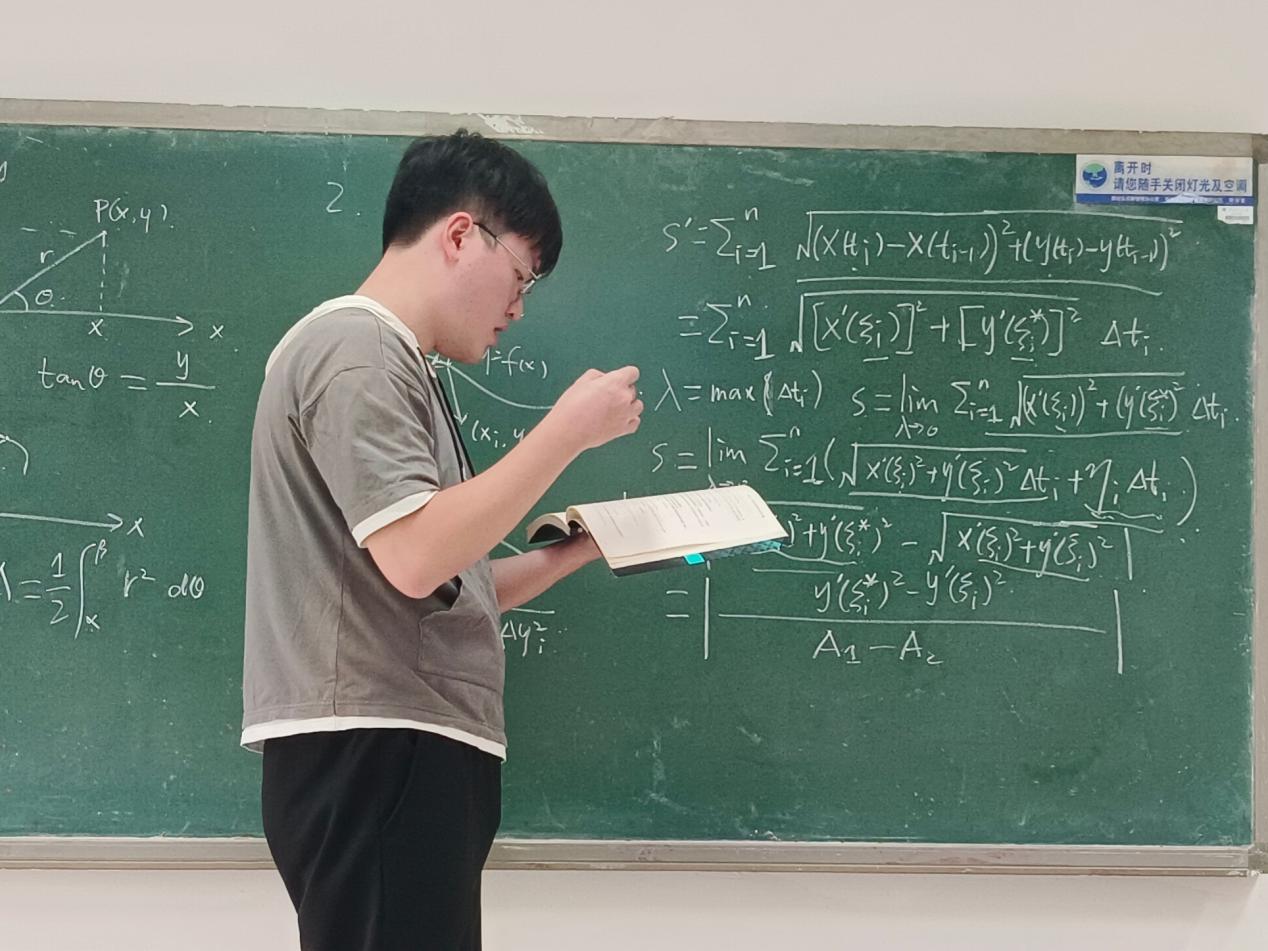 P(x,y).
r
θ
x
x
tanθ = y/x
x
=1/2 ∫_α^β r² dθ
2.
y=f(x)
(x_i, y
Δy_i²
离开时
请您随手关闭灯光及空调
s'=∑_{i=1}^n √((x(t_i)-x(t_{i-1}))²+(y(t_i)-y(t_{i-1}))²
=∑_{i=1}^n √([x'(ξ_i)]²+[y'(ξ_i*)]²) Δt_i.
λ=max(Δt_i) s=lim_{λ→0} ∑_{i=1}^n √((x'(ξ_i))²+(y'(ξ_i*)²) Δt_i.
s=lim ∑_{i=1}^n (√(x'(ξ_i)²+y'(ξ_i)²) Δt_i+η_i Δt_i)
)²+y'(ξ_i*)² - √(x'(ξ_i)²+y'(ξ_i)²)|
=|(y'(ξ_i*)²-y'(ξ_i)²)/(A_1-A_2)|